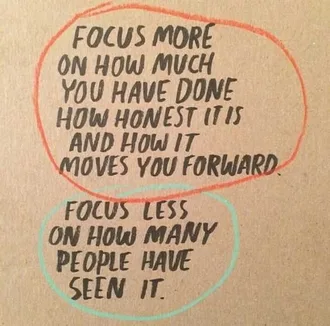 FOCUS MORE
ON HOW MUCH
YOU HAVE DONE
HOW HONEST IT IS
AND HOW IT
MOVES YOU FORWARD.
FOCUS LESS
ON HOW MANY
PEOPLE HAVE
SEEN IT.